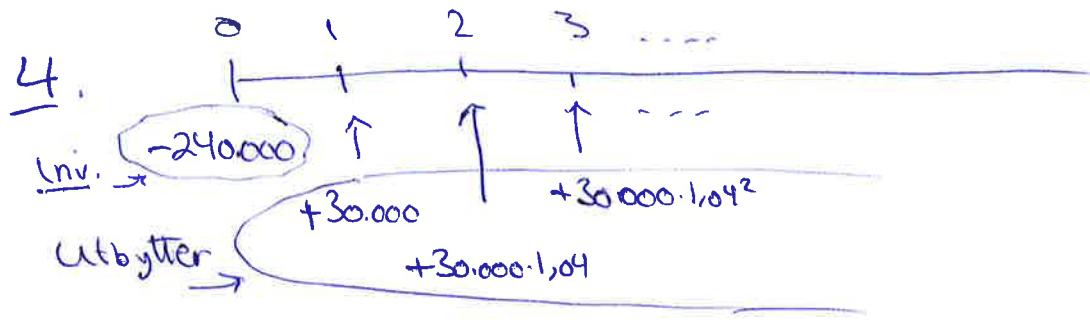 0 1 2 3 ....
4.
-240.000 ----
Inv.
+30.000 +30.000·1,04²
Utbytter
+30.000·1,04